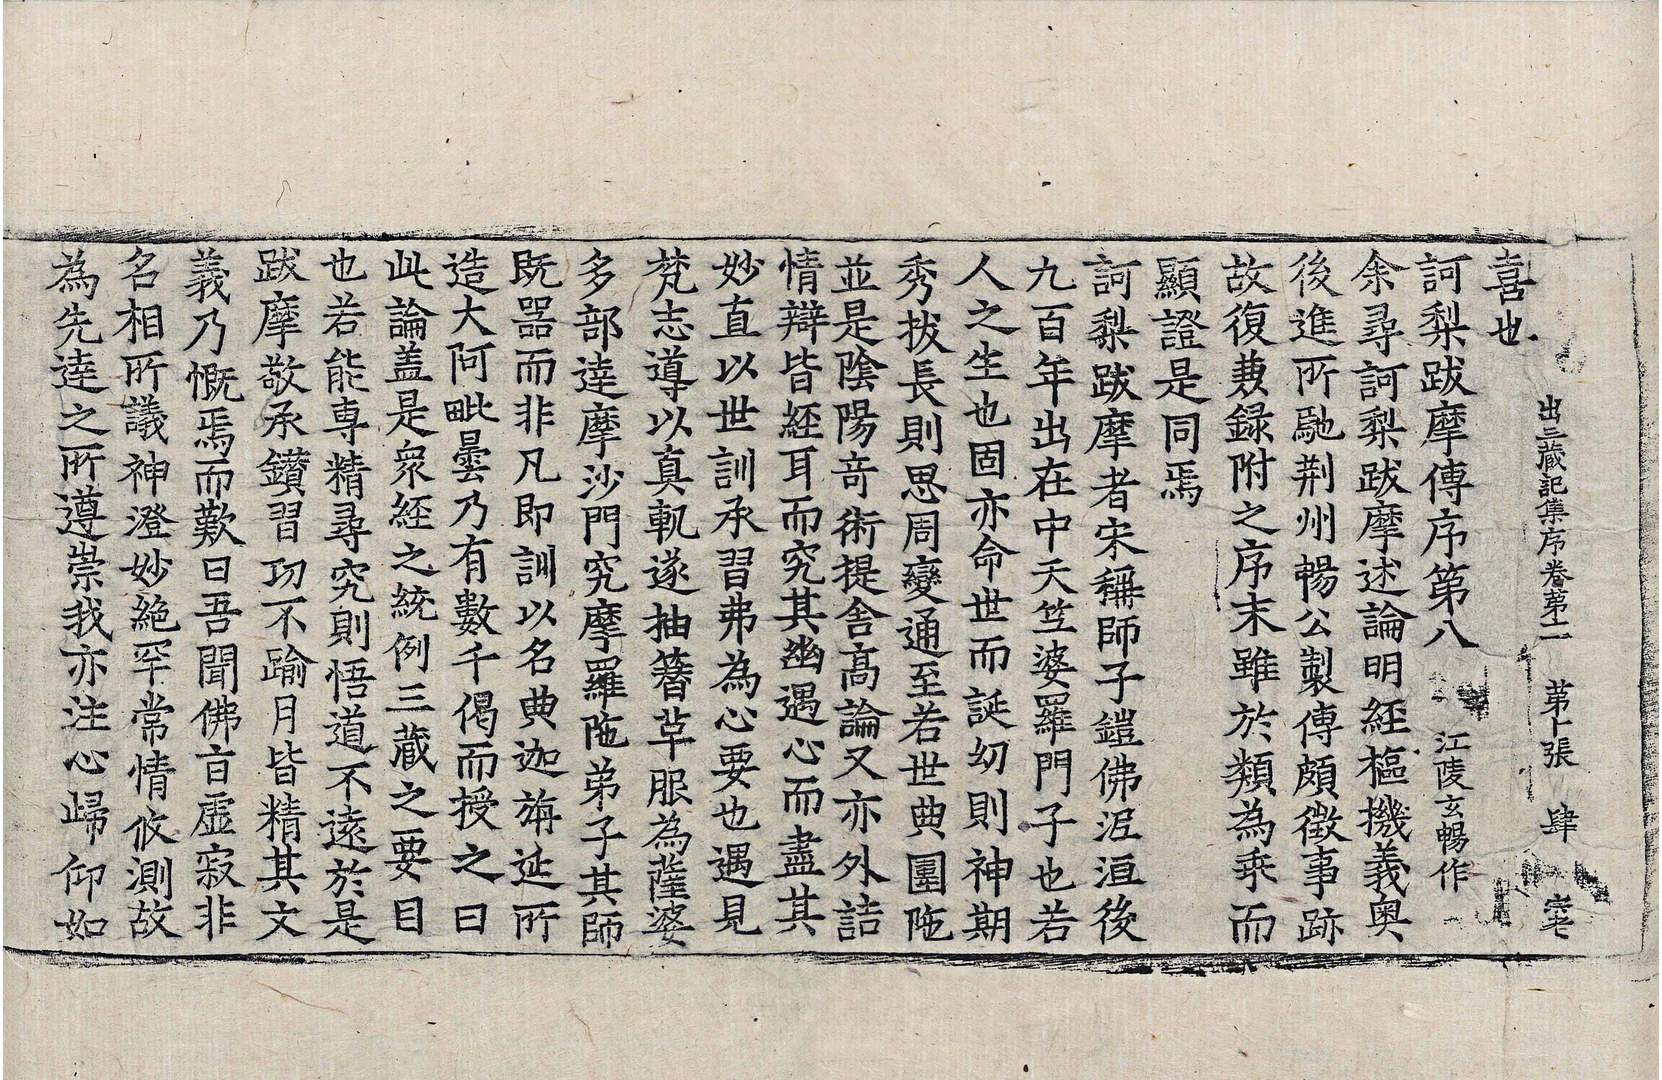 出三藏記集序卷第十一 第十張 肆 宓
喜也
訶梨跋摩傳序第八 江陵玄暢作
余尋訶梨跋摩述論明經樞機義奥
後進所馳荆州暢公製傳頗徵事跡
故復兼録附之序末雖於類為乖而
顯證是同焉
訶梨跋摩者宋稱師子鎧佛泥洹後
九百年出在中天竺婆羅門子也若
人之生也固亦命世而誕幼則神期
秀拔長則思周變通至若世典圍陁
並是陰陽竒術提舎高論又亦外誥
情辯皆経耳而究其幽遇心而盡其
妙直以世訓承習弗為心要也遇見
梵志導以真軌遂抽簪草服為薩婆
多部達摩沙門究摩羅陁弟子其師
既器而非凡即訓以名典迦旃延所
造大阿毗曇乃有數千偈而授之曰
此論盖是衆經之統例三藏之要目
也若能専精尋究則悟道不遠於是
跋摩敬承鑚習功不踰月皆精其文
義乃慨焉而歎曰吾聞佛旨虚寂非
名相所議神澄妙絶罕常情攸測故
為先達之所遵崇我亦注心歸仰如